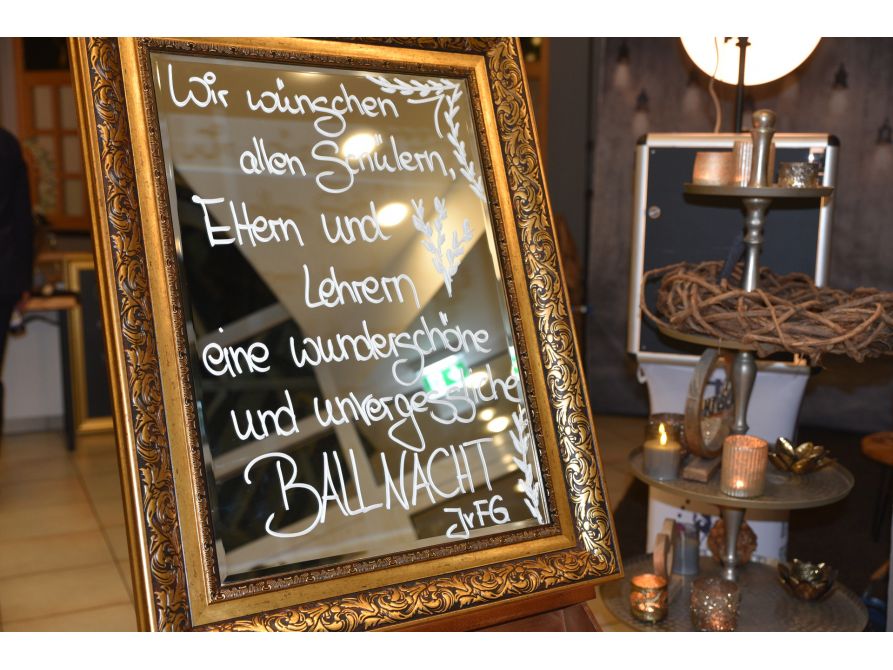 Wir wünschen
allen Schülern,
Eltern und
Lehrern
eine wunderschöne
und unvergessliche
BALLNACHT
JvFG